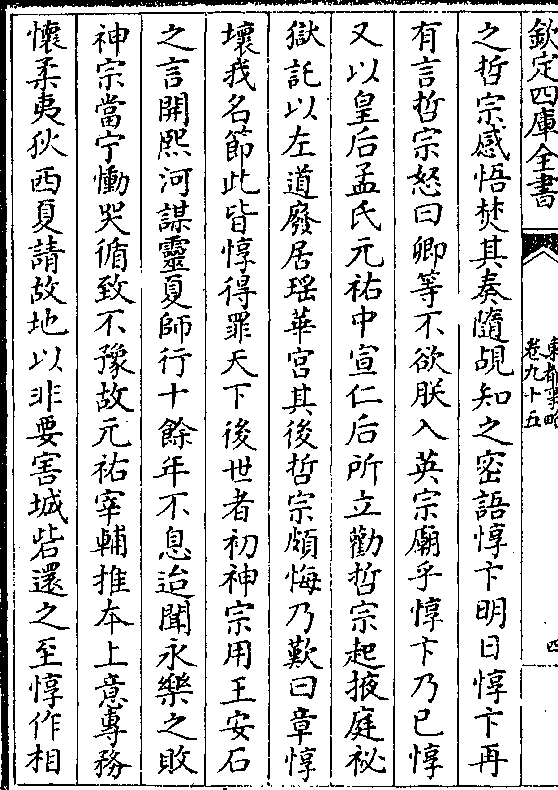 欽定四庫全書
東都事略
卷九十五
四
之哲宗感悟焚其奏隨覘知之密語惇卞明日惇卞再
有言哲宗怒曰卿等不欲朕入英宗廟乎惇卞乃已惇
又以皇后孟氏元祐中宣仁后所立勸哲宗起掖庭祕
獄託以左道廢居瑶華宮其後哲宗頗悔乃歎曰章惇
壞我名節此皆惇得罪天下後世者初神宗用王安石
之言開熙河謀靈夏師行十餘年不息迨聞永樂之敗
神宗當宁慟哭循致不豫故元祐宰輔推本上意專務
懷柔夷狄西夏請故地以非要害城砦還之至惇作相